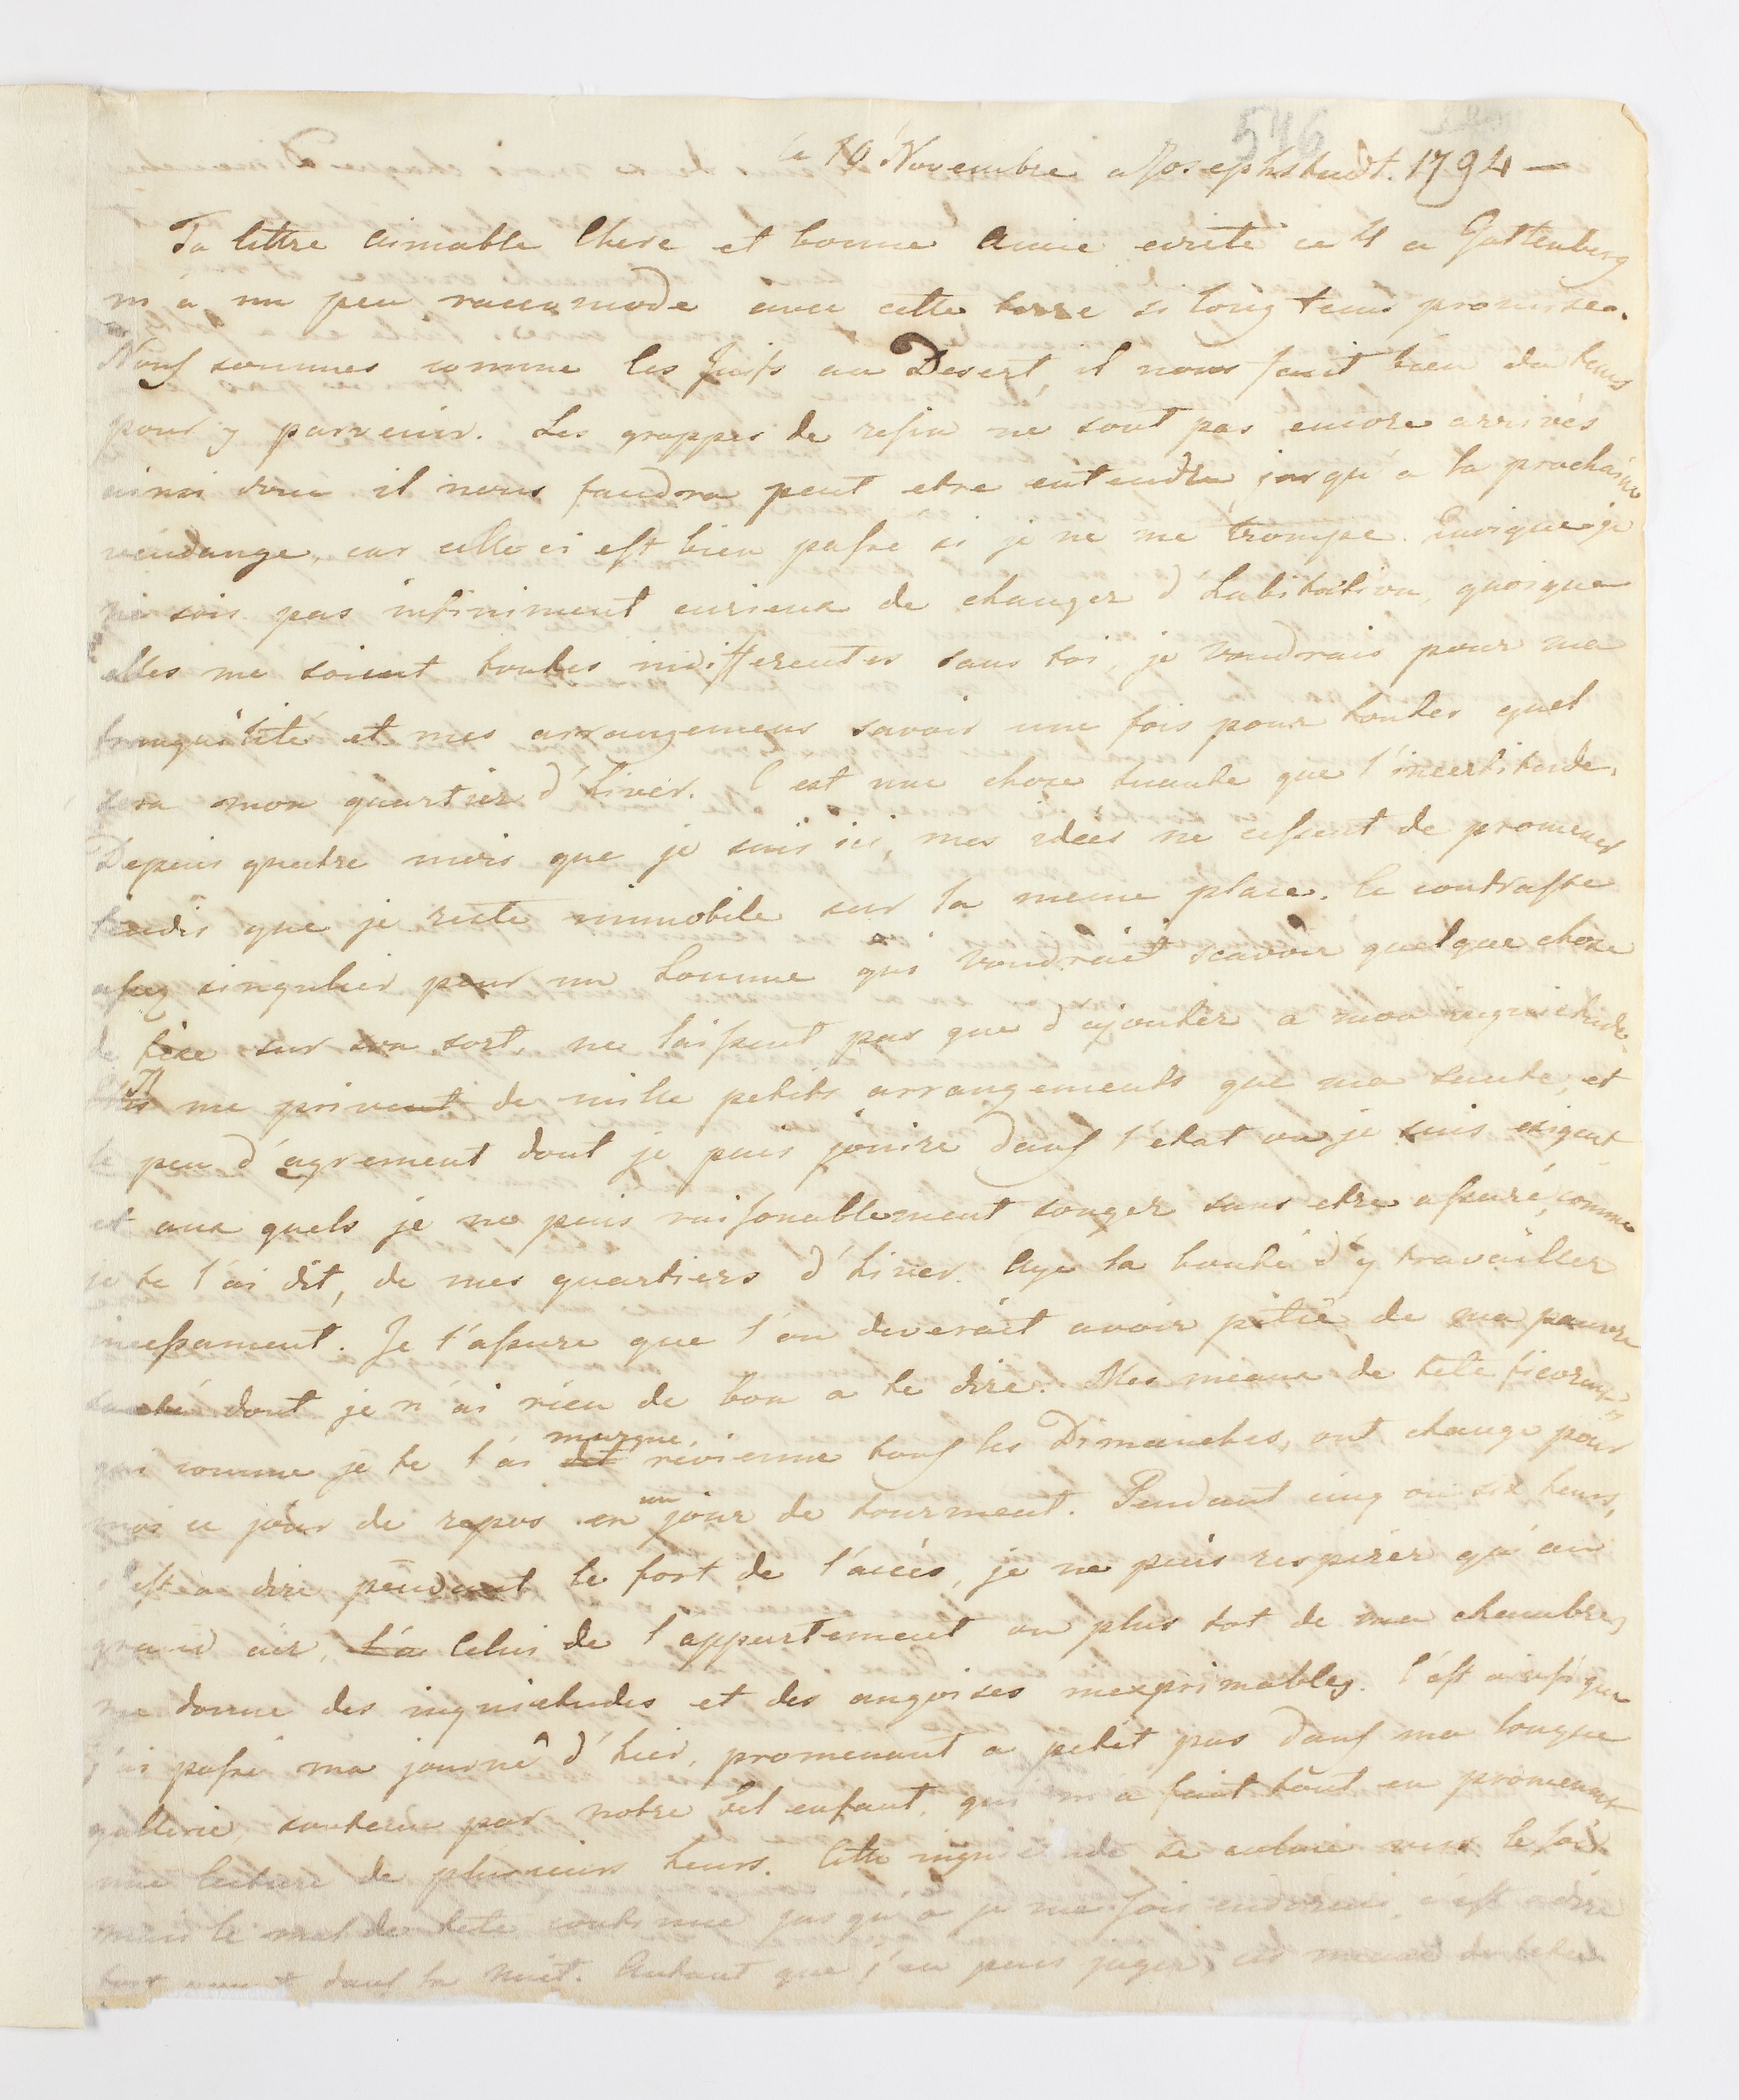 546
le 10 Novembre a Josephstadt. 1794 —
Ta lettre aimable Chere et bonne Amie ecrite ce 4 a Guttenberg
m'a un peu racomodé avec cette terre si longtems promise.
Nous sommes comme les Juifs au Desert, il nous faut bien du tems
pour y parvenir. Les grappes de resin ne sont pas encore arrivés
ainsi donc il nous faudra peut etre entendre jusqu'a la prochaine
vendange, car celle ci est bien passe si je ne me trompe. Quoique je
ne sois pas infiniment curieux de changer d'habitation, quoique
elles me soient toutes indifferentes sans toi, je voudrais pour ma
tranquilité et mes arrangemens savoir une fois pour toutes quel
sera mon quartier d'hiver. C'est une chose tuante que l'incertitude.
Depuis quatre mois que je suis ici, mes idées ne cessent de promener
tandis que je reste immobile sur la meme place. Ce contraste
assez singulier pour un homme qui voudrait scavoir quelque chose
de fixe sur son sort, ne laissent pas que d'ajouter a mon inquietude.
Il me privent de mille petits arrangements que ma sante, et
le peu d'agrement dont je puis jouire dans l'etat ou je suis exigent
et aux quels je ne puis raisonablement songer sans etre assuré, comme
je te l'ai dit, de mes quartiers d'hiver. Aye la bonté d'y travailler
incessament. Je t'assure que l'on deverait avoir pitié de ma pauvre
santé dont je n'ai rien de bon a te dire. Mes meaux de tete fievreux
qui comme je te l'ai dit marqué, revienne tous les Dimanches, ont change pour
moi ce jour de repos en un jour de tourment. Pendant cinq ou six heurs,
c'est a dire pendant le fort de l'accés, je ne puis respirer qu'au
grand air, L'a Celui de l'appartement ou plus tot de ma chambre,
me donne des inquietudes et des angoises inexprimables. C'est ainsi que
j'ai passé ma journé d'hier, promenant a petit pas dans ma longue
gallerie, soutenu par notre bel enfant, qui m'a fait tout en promenant
une lecture de plusieurs heurs. Cette inquietude se calme vers le soir
mais le mal de tete continue jusqu'a je me sois endormi, c'est a dire
bien avant dans la nuit. Autant que j'en puis juger, ces meaux de tete